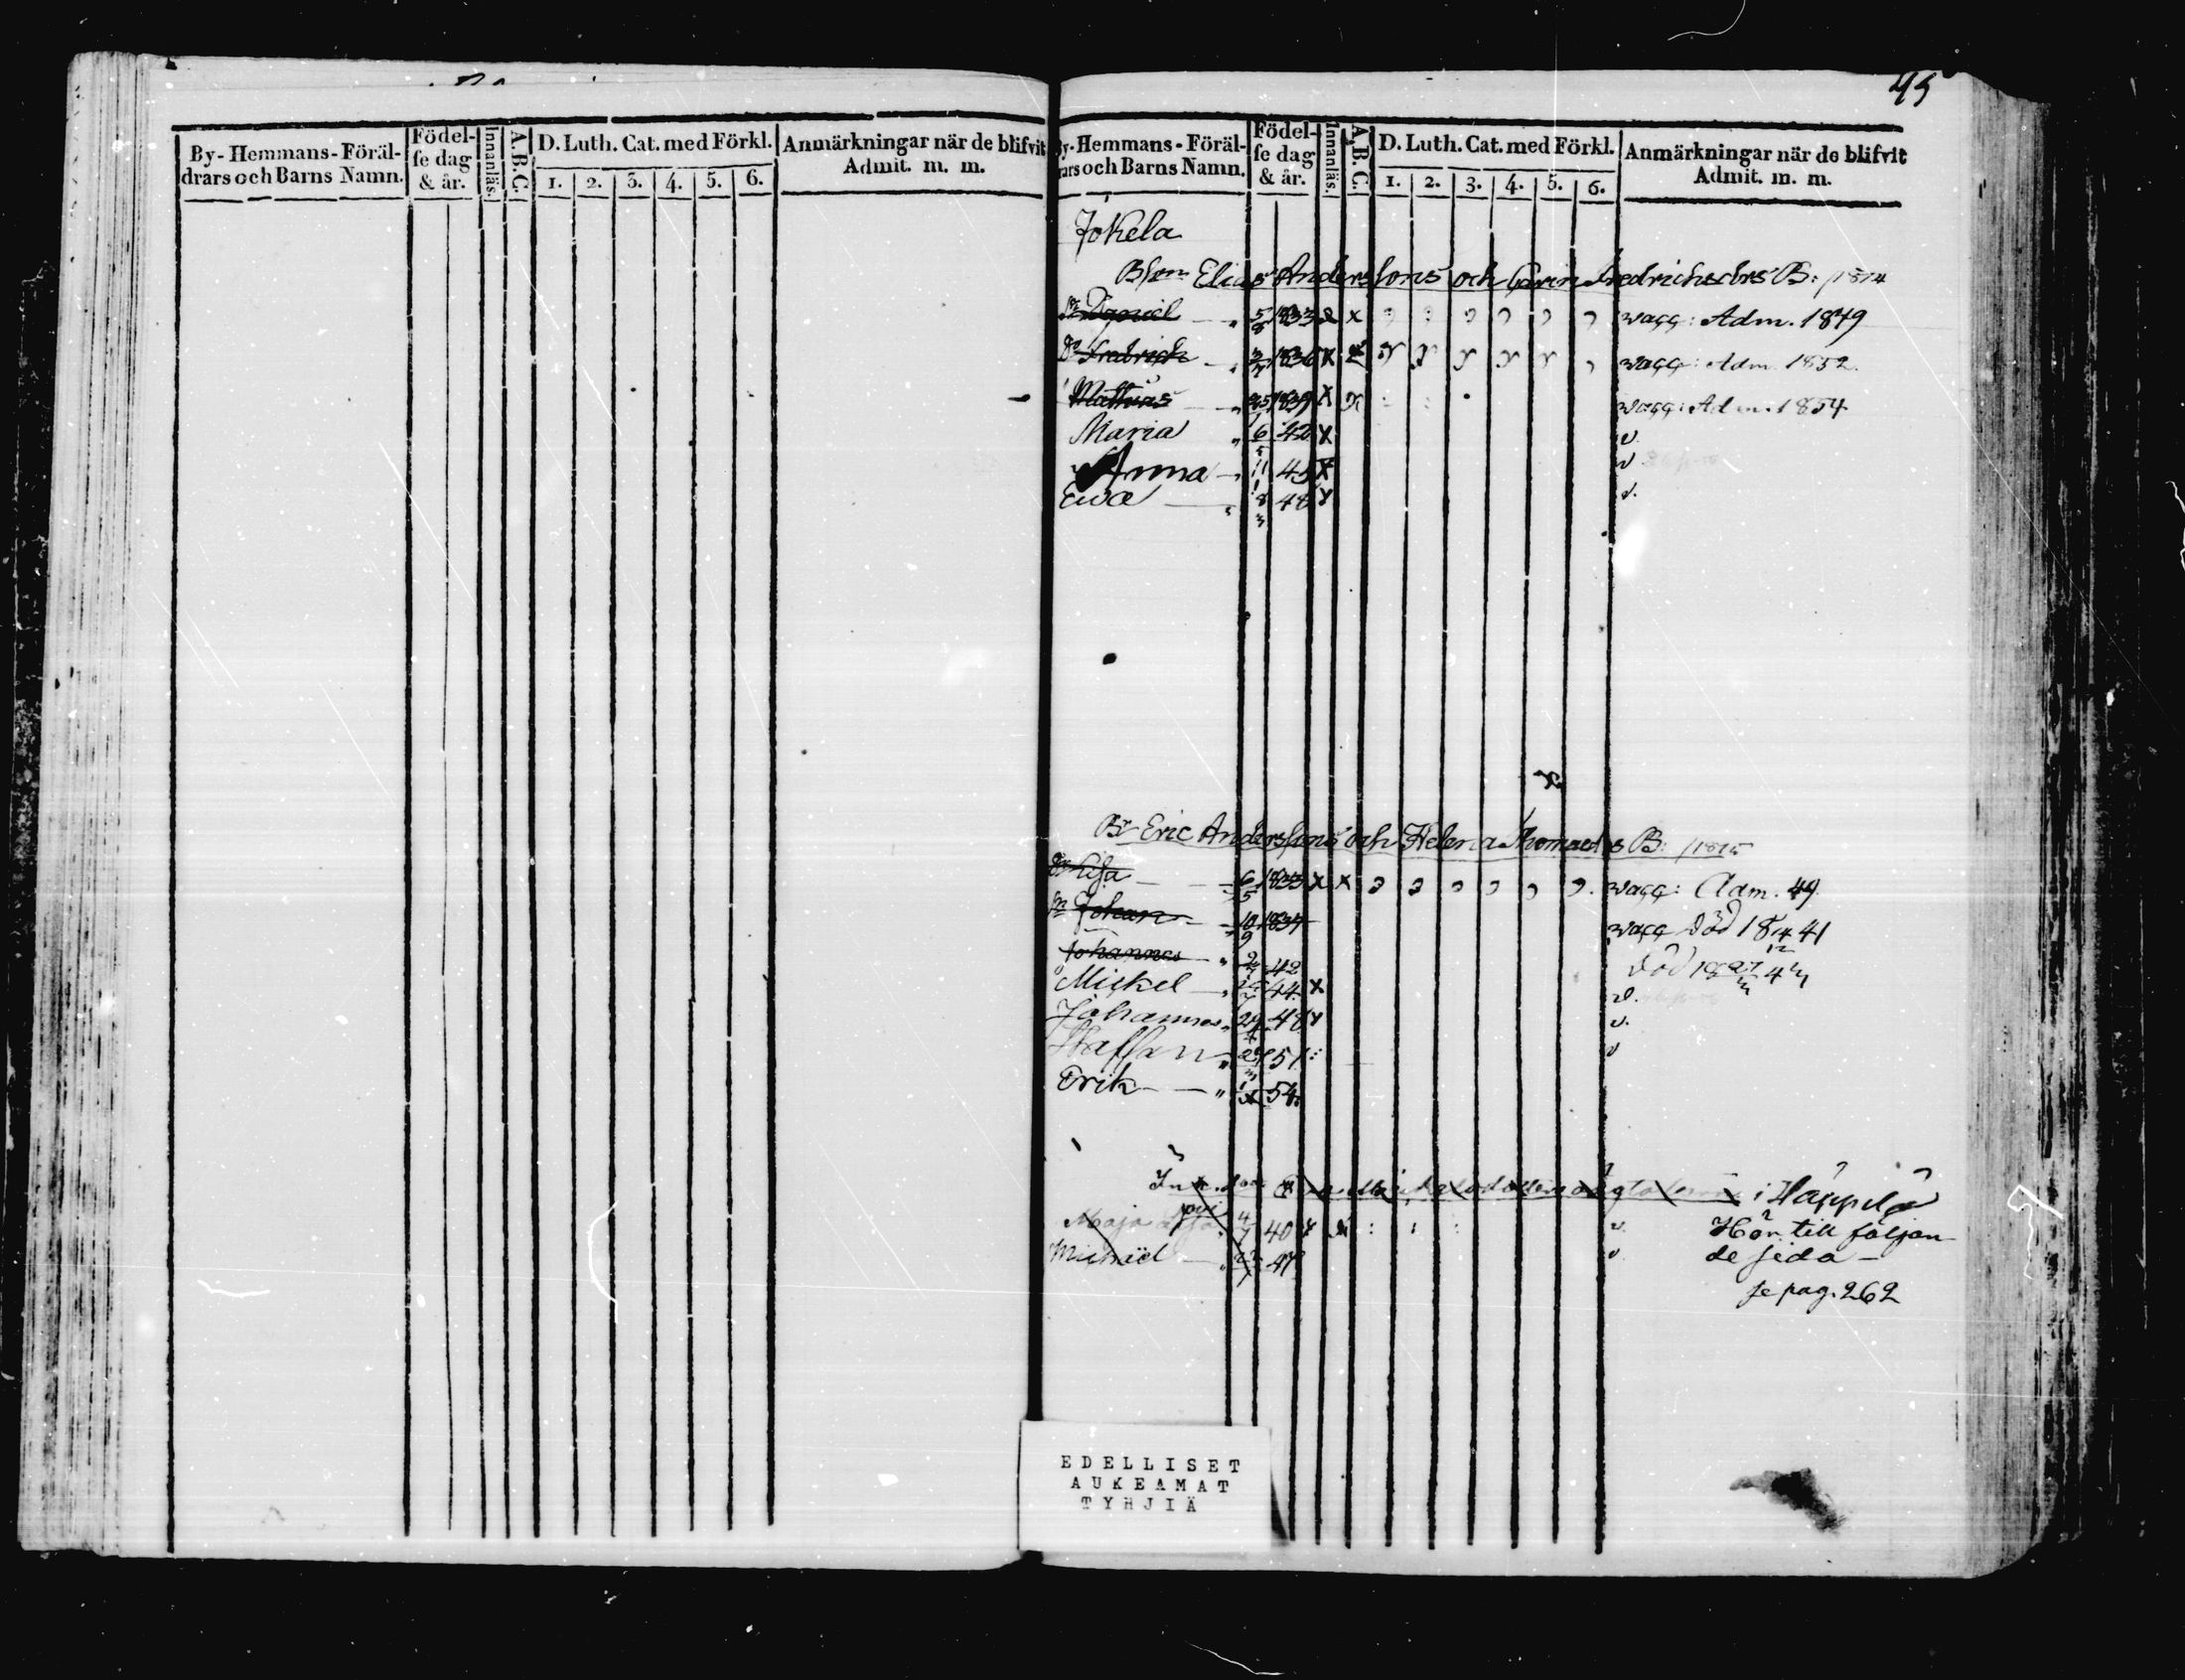 By-Hemmans-Föräl-
drars och Barns Namn.
Födel-
se dag
& år.
Innanläs.
A.B.C.
D. Luth. Cat. med Förkl.
1. 2. 3. 4. 5. 6.
Anmärkningar när de blifvit
Admit. m. m.
45
By-Hemmans-Föräl-
rars och Barns Namn.
Födel-
se dag
& år.
Innanläs.
A.B.C.
D. Luth. Cat. med Förkl.
1. 2. 3. 4. 5. 6.
Anmärkningar när de blifvit
Admit. m. m.
Jokela
Elias Anderssons och Carin Fredrichsdrs B:
Daniel 5/8 1833 x wacc: Adm. 1849
Fredrich 1836 x wacc: Adm. 1852.
Mathias 1839 x wacc: Adm. 1854
Maria 6 42 x v.
Anna 11 45 x v
Ewa 8/3 48 x v.
Eric Anderssons och Helena Thomaed s B: 1815
Lisa 6/5 1833 x x wacc: Adm. 49.
Johan 10/9 1834 wacc död 18 4/12 41
Johannes 42 död 18
Mickel 44 x v.
Johannes 48 x v.
Staffan 51 v
Erik 54.
i Häppilä
Maja 4/7 40 v. Hör till följan
Michaël 47 v de sida -
se pag. 262
EDELLISET
AUKEAMAT
TYHJIÄ